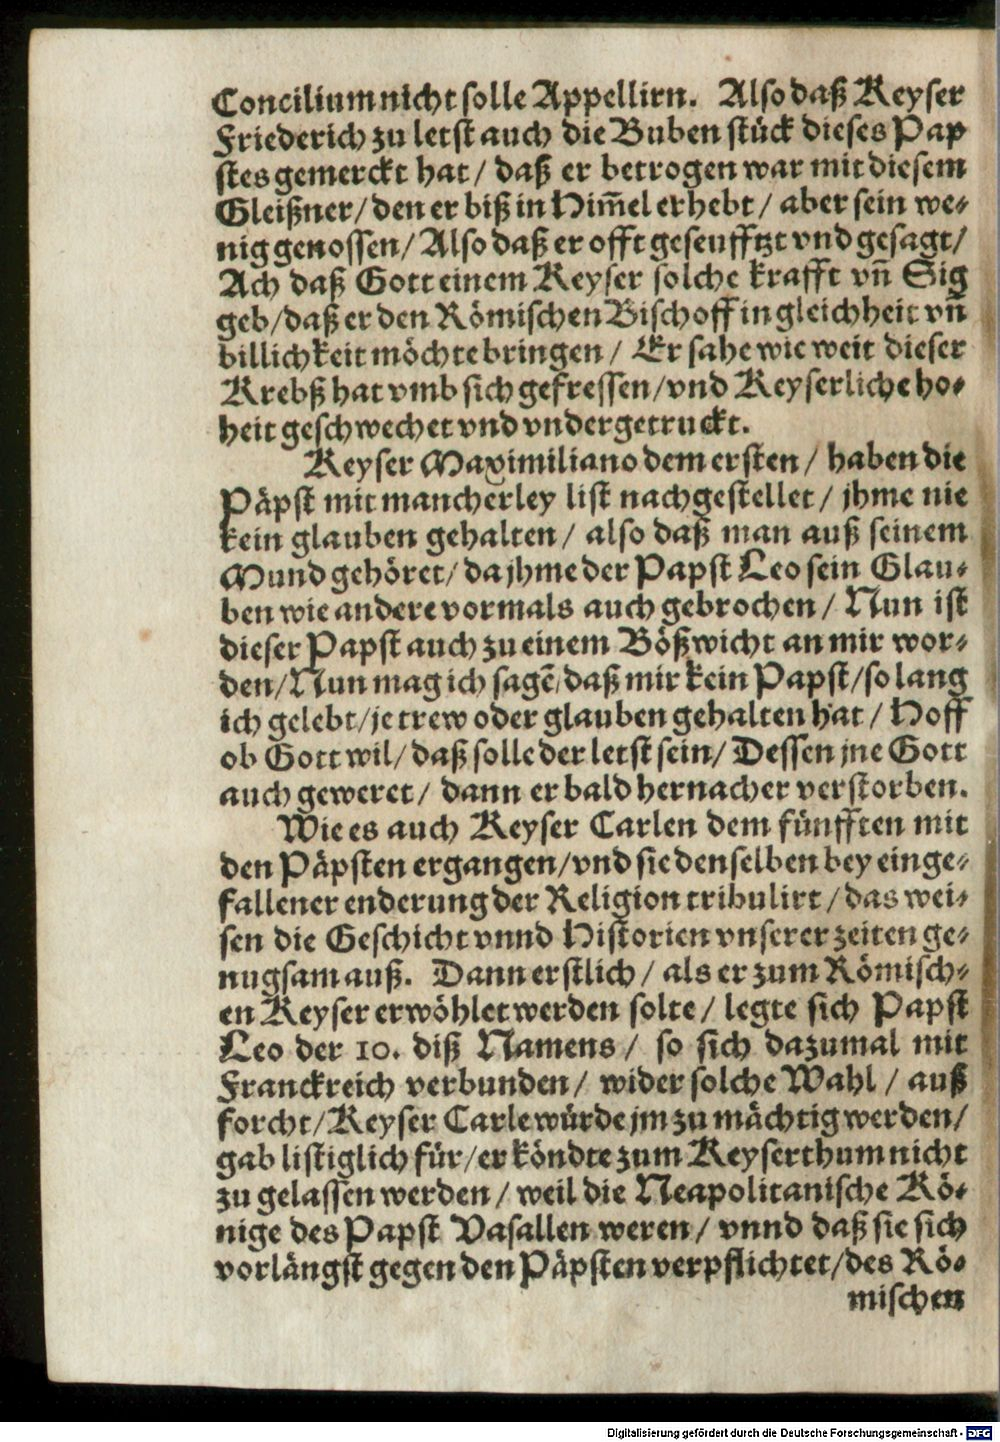 Concilium nicht solle Appellirn. Also daß Keyser
Friederich zu letst auch die Buben stück dieses Pap
stes gemerckt hat / daß er betrogen war mit diesem
Gleißner / den er biß in Him̃el erhebt / aber sein we⸗
nig genossen / Also daß er offt geseufftzt vnd gesagt /
Ach daß Gott einem Keyser solche krafft vñ Sig
geb / daß er den Römischen Bischoff in gleichheit vñ
billichkeit möchte bringen / Er sahe wie weit dieser
Krebß hat vmb sich gefressen / vnd Keyserliche ho⸗
heit geschwechet vnd vndergetruckt.
Keyser Maximiliano dem ersten / haben die
Päpst mit mancherley list nachgestellet / jhme nie
kein glauben gehalten / also daß man auß seinem
Mund gehöret / da jhme der Papst Leo sein Glau⸗
ben wie andere vormals auch gebrochen / Nun ist
dieser Papst auch zu einem Bößwicht an mir wor⸗
den / Nun mag ich sagẽ / daß mir kein Papst / so lang
ich gelebt / je trew oder glauben gehalten hat / Hoff
ob Gott wil / daß solle der letst sein / Dessen jne Gott
auch geweret / dann er bald hernacher verstorben.
Wie es auch Keyser Carlen dem fünfften mit
den Päpsten ergangen / vnd sie denselben bey einge⸗
fallener enderung der Religion tribulirt / das wei⸗
sen die Geschicht vnnd Historien vnserer zeiten ge⸗
nugsam auß. Dann erstlich / als er zum Römisch⸗
en Keyser erwöhlet werden solte / legte sich Papst
Leo der 10. diß Namens / so sich dazumal mit
Franckreich verbunden / wider solche Wahl / auß
forcht / Keyser Carle würde jm zu mächtig werden /
gab listiglich für / er köndte zum Keyserthum nicht
zu gelassen werden / weil die Neapolitanische Kö⸗
nige des Papst Vasallen weren / vnnd daß sie sich
vorlängst gegen den Päpsten verpflichtet / des Rö⸗
mischen
Digitalisierung gefördert durch die Deutsche Forschungsgemeinschaft - DFG